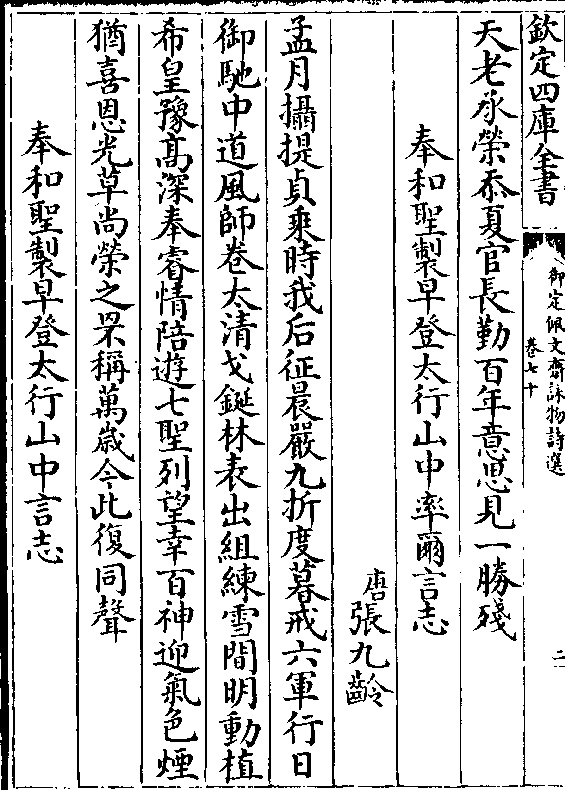 欽定四庫全書
御定佩文齋詠物詩選
卷七十
二
天老承榮忝夏官長勤百年意思見一勝殘
奉和聖製早登太行山中率爾言志
唐張九齡
孟月攝提貞乘時我后征晨嚴九折度暮戒六軍行日
御馳中道風師卷太清戈鋋林表出組練雪間明動植
希皇豫高深奉睿情陪遊七聖列望幸百神迎氣色煙
猶喜恩光草尚榮之罘稱萬歳今此復同聲
奉和聖製早登太行山中言志